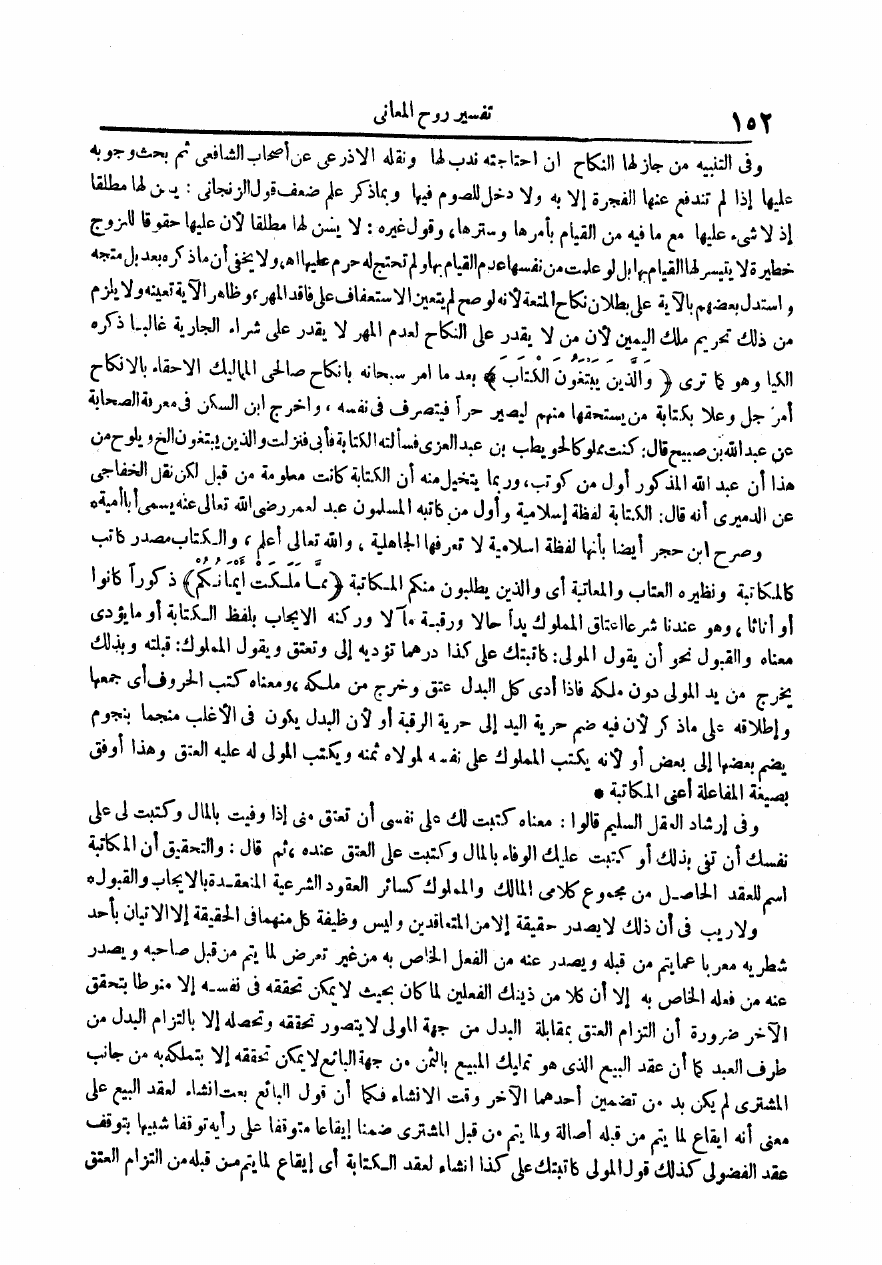 ١٥٢
تفسير روح المعانى
وفى التنبيه من جاز لها النكاح ان احتاجته ندب لها ونقله الاذرعى عن أصحاب الشافعى ثم بحث وجوبه
عليها إذا لم تندفع عنها الفجرة إلا به ولا دخل للصوم فيها وبماذكر علم ضعف قول الزنجانى : يسن لها مطلقا
إذ لا شىء عليها مع ما فيه من القيام بأمرها وسترها، وقول غيره : لا يسن لها مطلقا لأن عليها حقوقا للزوج
خطيرة لا يتيسر لها القيام بها بل لو علمت من نفسها عدم القيام بها ولم تحتج له حرم عليها اه، ولا يخفى أن ماذكره بعد بل متجه
واستدل بعضهم بالآية على بطلان نكاح المتعة لأنه لو صح لم يتعين الاستعفاف على فاقد المهر، وظاهر الآية تعينه ولا يلزم
من ذلك تحريم ملك اليمين لأن من لا يقدر على النكاح لعدم المهر لا يقدر على شراء الجارية غالبا ذكره
الكيا وهو كما ترى ﴿ وَالَّذينَ يَبْتَغُونَ الْكتَابَ ﴾ بعد ما امر سبحانه بانكاح صالحى المماليك الاحقاء بالانكاح
أمر جل وعلا بكتابة من يستحقها منهم ليصير حراً فيتصرف فى نفسه ، واخرج ابن السكن فى معرفة الصحابة
عن عبد الله بن صبيح قال: كنت مملوكا لحويطب بن عبد العزى فسألته الكتابة فأبى فنزلت والذين يبتغون الخ ويلوح من
هذا أن عبد الله المذكور أول من كوتب، وربما يتخيل منه أن الكتابة كانت معلومة من قبل لكن نقل الخفاجى
عن الدميرى أنه قال: الكتابة لفظة إسلامية وأول من كاتبه المسلمون عبد لعمر رضى الله تعالى عنه يسمى أبا أمية ٥
وصرح ابن حجر أيضا بأنها لفظة اسلامية لا تعرفها الجاهلية ، والله تعالى أعلم ، والكتاب مصدر كاتب
كالمكاتبة ونظيره العتاب والمعاتبة أى والذين يطلبون منكم المكاتبة ﴿ ممَّا مَلَكَتْ أَيْمَانُكُمْ ﴾ ذكوراً كانوا
أو أناثا ، وهو عندنا شرعا اعتاق المملوك يداً حالا ورقبة مآلا وركنه الايجاب بلفظ الكتابة أو ما يؤدى
معناه والقبول نحو أن يقول المولى: كاتبتك على كذا درهما تؤديه إلى وتعتق ويقول المملوك: قبلته وبذلك
يخرج من يد المولى دون ملكه فاذا أدى كل البدل عتق وخرج من ملكه ، ومعناه كتب الحروف أى جمعها
وإطلاقه على ماذكر لأن فيه ضم حرية اليد إلى حرية الرقبة أو لأن البدل يكون فى الأغلب منجما بنجوم
يضم بعضها إلى بعض أو لأنه يكتب المملوك على نفسه لمولاه ثمنه ويكتب المولى له عليه العتق وهذا أوفق
بصيغة المفاعلة أعنى المكاتبة *
وفى إرشاد العقل السليم قالوا : معناه كتبت لك على نفسى أن تعتق منى إذا وفيت بالمال وكتبت لى على
نفسك أن تفى بذلك أو كتبت عليك الوفاء بالمال وكتبت على العتق عنده ، ثم قال : والتحقيق أن المكاتبة
اسم للعقد الحاصل من مجموع كلامى المالك والمملوك كسائر العقود الشرعية المنعقدة بالايجاب والقبول ٥
ولا ريب فى أن ذلك لا يصدر حقيقة إلا من المتعاقدين وليس وظيفة كل منهما فى الحقيقة إلا الاتيان بأحد
شطريه معربا عما يتم من قبله ويصدر عنه من الفعل الخاص به من غير تعرض لما يتم من قبل صاحبه ويصدر
عنه من فعله الخاص به إلا أن كلا من ذينك الفعلين لما كان بحيث لا يمكن تحققه فى نفسه إلا منوطا بتحقق
الآخر ضرورة أن التزام العتق بمقابلة البدل من جهة المولى لا يتصور تحققه وتحصله إلا بالتزام البدل من
طرف العبد كما أن عقد البيع الذى هو تمليك المبيع بالثمن من جهة البائع لا يمكن تحققه إلا بتملكه به من جانب
المشترى لم يكن بد من تضمين أحدهما الآخر وقت الانشاء فكما أن قول البائع بعت انشاء لعقد البيع على
معنى أنه ايقاع لما يتم من قبله أصالة ولما يتم من قبل المشترى ضمنا إيقاعا متوقفا على رأيه توقفا شبيها بتوقف
عقد الفضولى كذلك قول المولى كاتبتك على كذا انشاء لعقد الكتابة أى إيقاع لما يتم من قبله من التزام العتق